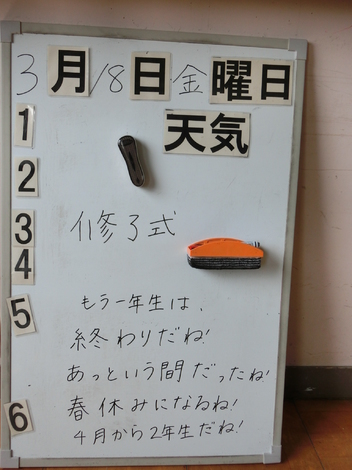 3月18日金曜日
1 天気
2
3 修了式
4
5 もう一年生は、
終わりだね!
あっという間だったね!
春休みになるね!
6 4月から2年生だね!